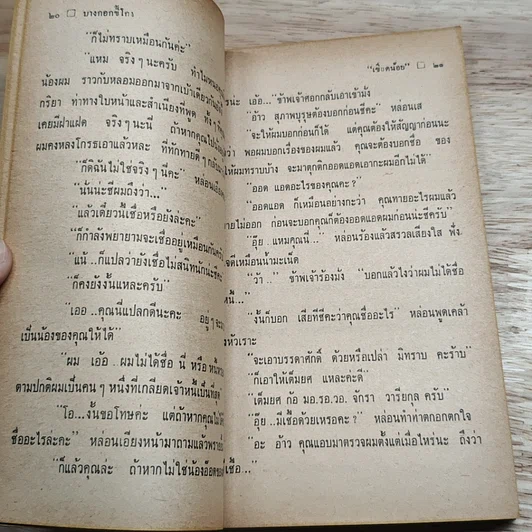 ๒๐ บางกอกซิโกโ
"ก็ไม่ทราบเหมือนกันค่ะ"
"แหม จริง ๆ นะครับ ทำไม
น้องผม ราวกับหลอมออกมาจากเบ้าเดียวกัน
กริยา ท่าทางใบหน้าและสำเนียงที่พูด
เคยมีฝาแฝด จริง ๆ นะนี่ ถ้าหากคุณไป
ผมคงหลงโกรธเอาแล้วหละ ที่ทักทายดี ๆ
"ก็ดิฉันไม่ใช่จริง ๆ นี่คะ" หล่อน
"นั่นน่ะซีผมถึงว่า..."
"แล้วเดี๋ยวนี้เชื่อหรือยังล่ะคะ"
"ก็กำลังพยายามจะเชื่ออยู่เหมือนกัน
"แน้ ..ก็แปลว่ายังเชื่อไม่สนิทนักน่ะซีคะ
"ก็คงยังงั้นแหละครับ"
"เออ ..คุณนี่แปลกดีนะคะ อยู่ ๆ
เป็นน้องของคุณให้ได้"
"ผม เอ้อ ..ผมไม่ได้ชื่อ นี่ หรือ
ตามปกติผมเป็นคน ๆ หนึ่งที่เกลียดเจ้าหนี้เป็นที่สุด
"โอ...งั้นขอโทษค่ะ แต่ถ้าหากคุณไม่
ชื่ออะไรล่ะคะ" หล่อนเอียงหน้ามาถามแล้ว
"ก็แล้วคุณล่ะ ถ้าหากไม่ใช่น้องอ๊อด
"เซี้ยดน้อย" ๒๑
เอ้อ..." ข้าพเจ้าศอกกลับเอาเข้ามั่ง
"อ้าว สุภาพบุรุษต้องบอกก่อนซีคะ" หล่อน
"จะให้ผมบอกก่อนก็ได้ แต่คุณต้องให้สัญญาก่อนนะ
ว่า พอผมบอกเรื่องของผมแล้ว คุณจะต้องบอกชื่อ ของ
ให้ผมทราบบ้าง จะมาตุกติกออดแอดเอากะผมอีกไม่ได้"
"ออด แอดอะไรของคุณคะ ?"
"ออดแอด ก็เหมือนอย่างกะว่า คุณทายอะไรผมแล้ว
ไม่ออก ก่อนจะบอกคุณก็ต้องออดแอดผมก่อนน่ะซีครับ"
"อุ๊ย ..แหมคุณนี่ .." หล่อนร้องแล้วสรวลเสียงใส
"ว้า .." ข้าพเจ้าร้องมั่ง "บอกแล้วไงว่าผมไม่ได้ชื่อ
หนี้..."
"งั้นก็บอก เสียทีซีคะว่าคุณชื่ออะไร" หล่อนพูดเคล้า
หัวเราะ
"จะเอาบรรดาศักดิ์ ด้วยหรือเปล่า มิทราบ คะร้าบ"
"ก็เอาให้เต็มยศ แหละค่ะดี"
"เต็มยศ ก้อ มอ.รอ.วอ. จักรา วาริยกุล ครับ"
"อุ๊ย ..มีเชื้อด้วยเหรอคะ ?" หล่อนทำท่าตกอกตกใจ
"อะ อ้าว คุณแอบมาตรวจผมตั้งแต่เมื่อไหร่น่ะ ถึงว่า
เชื้อ..."